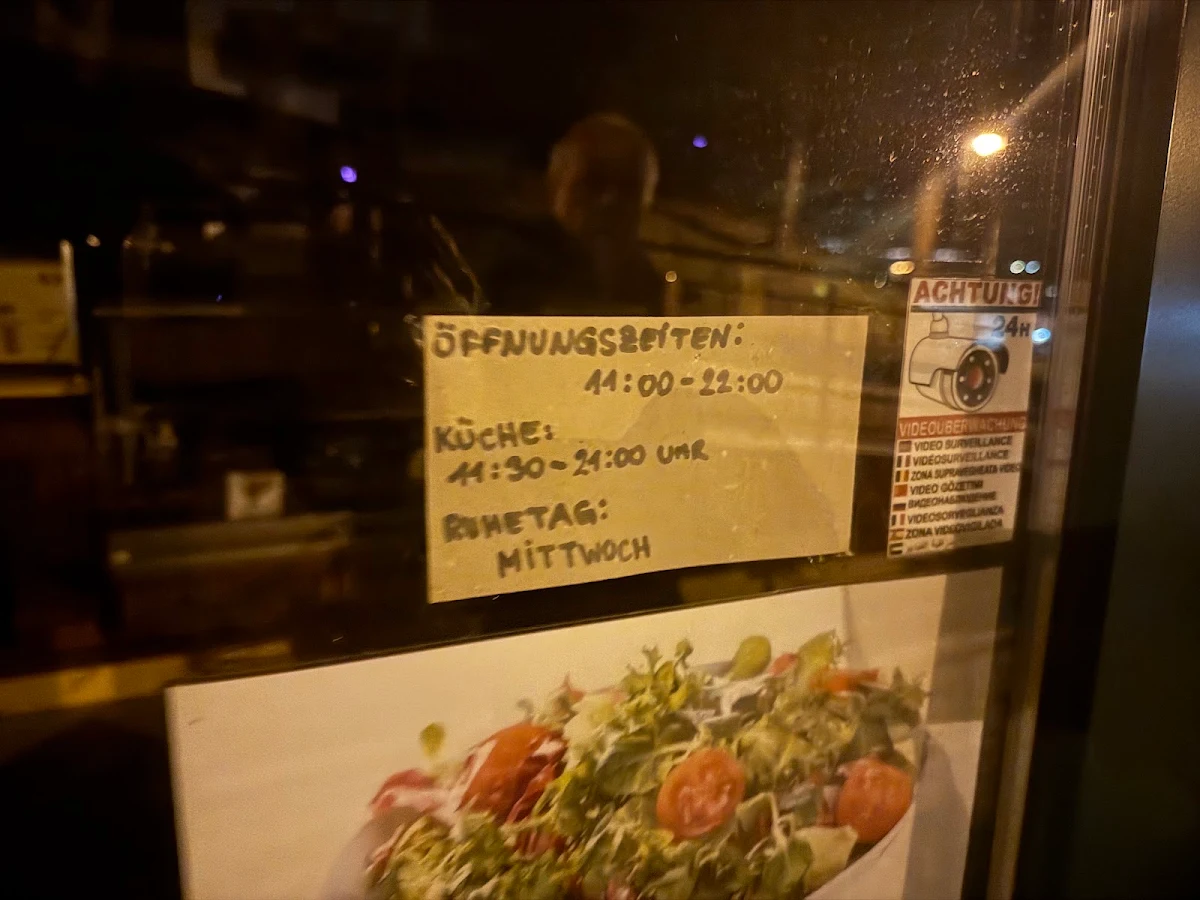 ÖFFNUNGSZEITEN:
11:00-22:00
KÜCHE:
11:30-21:00 UHR
RUHETAG:
MITTWOCH
ACHTUNG!
24H
VIDEOÜBERWACHUNG
VIDEO SURVEILLANCE
VIDÉOSURVEILLANCE
ZONA SUPRAVEGHEATA VIDEO
VIDEO GÖZETIMI
ВИДЕОНАБЛЮДЕНИЕ
VIDEOSORVEGLIANZA
ZONA VIDEOVIGILADA